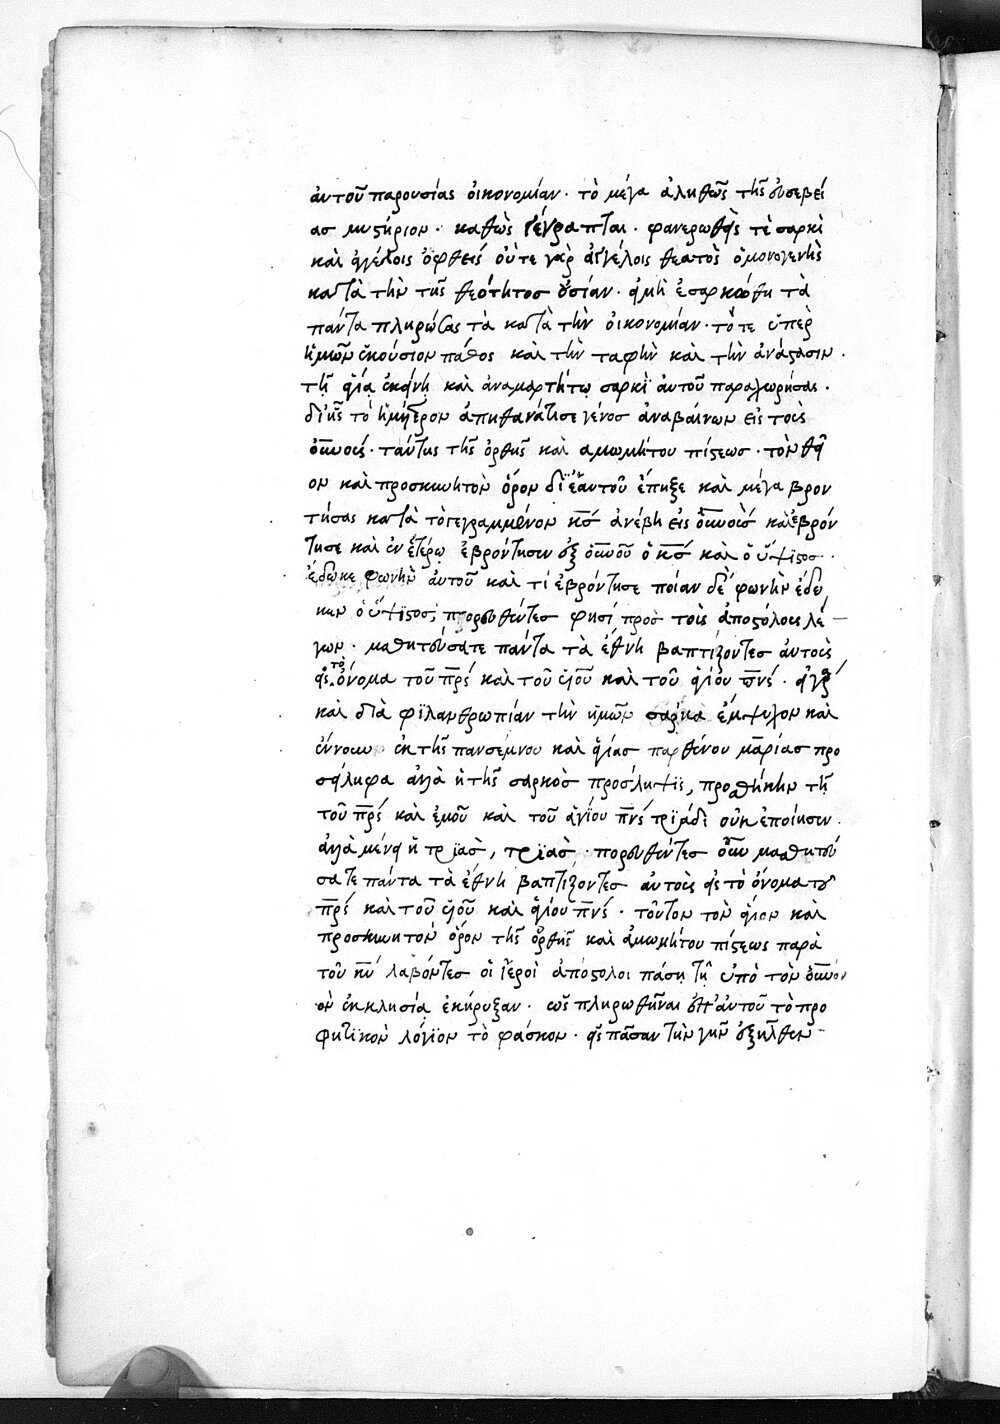 αὐτοῦ παρουσίας οἰκονομίαν· τὸ μέγα ἀληθῶς τῆς εὐσεβεί
ασ μυστήριον· καθὼς γέγραπται· φανερωθεὶς τὲ σαρκὶ
καὶ ἀγγέλοις ὀφθεὶς οὔτε γὰρ ἀγγέλοις θεατὸς ὁ μονογενὴς
κατὰ τὴν τῆς θεότητοσ οὐσίαν· εἰμὴ ἐσαρκώθη τὰ
πάντα πληρώσας τὰ κατὰ τὴν οἰκονομίαν· τότε ὑπὲρ
ἡμῶν ἑκούσιον πάθος καὶ τὴν ταφὴν καὶ τὴν ἀνάστασιν·
τῇ ἁγίᾳ ἐκείνῃ καὶ ἀναμαρτήτῳ σαρκὶ αὐτοῦ παραχωρήσας·
δι' ἧς τὸ ἡμέτερον ἀπηθανάτισε γένοσ ἀναβαίνων εἰς τοὺς
οὐ̅νούς· ταύτης τῆς ὀρθῆς καὶ αμωμήτου πίστεωσ· τὸν θεῖ
ον καὶ προσκυνητὸν ὅρον δι' ἑαυτοῦ ἔπηξε καὶ μέγα βρον
τήσας κατὰ τὸ γεγραμμένον κ̅ς ἀνέβη εἰς οὐ̅νοὺσ καὶ ἐβρόν
τησε καὶ ἐν ἑτέρῳ ἐβρόντησεν ἐξ οὐ̅νοῦ ὁ κ̅ς καὶ ὁ ὕψιστοσ·
ἔδωκε φωνὴν αὐτοῦ καὶ τί ἐβρόντησε ποίαν δὲ φωνὴν ἔδω
κεν ὁ ὕψιστοσ; πορευθέντεσ φησί προσ τοὺς ἀποστόλους λέ
γων· μαθητεύσατε πάντα τὰ ἔθνη βαπτίζοντεσ αὐτοὺς
εἰς τὸ ὄνομα τοῦ π̅ρ̅ς καὶ τοῦ υἱοῦ καὶ τοῦ ἁγίου π̅ν̅ς· εἰ γὰρ
καὶ διὰ φιλανθρωπίαν τὴν ἡμῶν σαρκα ἔμψυχον καὶ
ἔννουν ἐκ τῆς πανσέμνου καὶ ἁγίας παρθένου μαρίασ προ
σείληφα ἀλλὰ ἡ τῆς σαρκὸς πρόσληψις, προσθήκην τῇ
τοῦ π̅ρ̅ς καὶ ἐμοῦ καὶ τοῦ ἁγίου π̅ν̅ς τριάδι οὐκ ἐποίησεν·
ἀλλὰ μένει ἡ τριὰσ, τριὰσ· πορευθέντεσ οὖν μαθητεύ
σατε πάντα τὰ ἔθνη βαπτίζοντεσ αὐτοὺς εἰς τὸ ὄνομα τοῦ
π̅ρ̅ς καὶ τοῦ υἱοῦ καὶ ἁγίου π̅ν̅ς· τοῦτον τὸν θεῖον καὶ
προσκυνητὸν ὅρον τῆς ὀρθῆς καὶ ἀμωμήτου πίστεως παρὰ
τοῦ κ̅υ λαβόντεσ οἱ ἱεροὶ ἀπόστολοι πάσῃ τῇ ὑπὸ τὸν οὐ̅νον
ὸν ἐκκλησίᾳ ἐκήρυξαν· ὡς πληρωθῆναι ἐπ' αὐτοῦ τὸ προ
φητικὸν λόγιον τὸ φάσκον· εἰς πᾶσαν τὴν γῆν ἐξῆλθεν